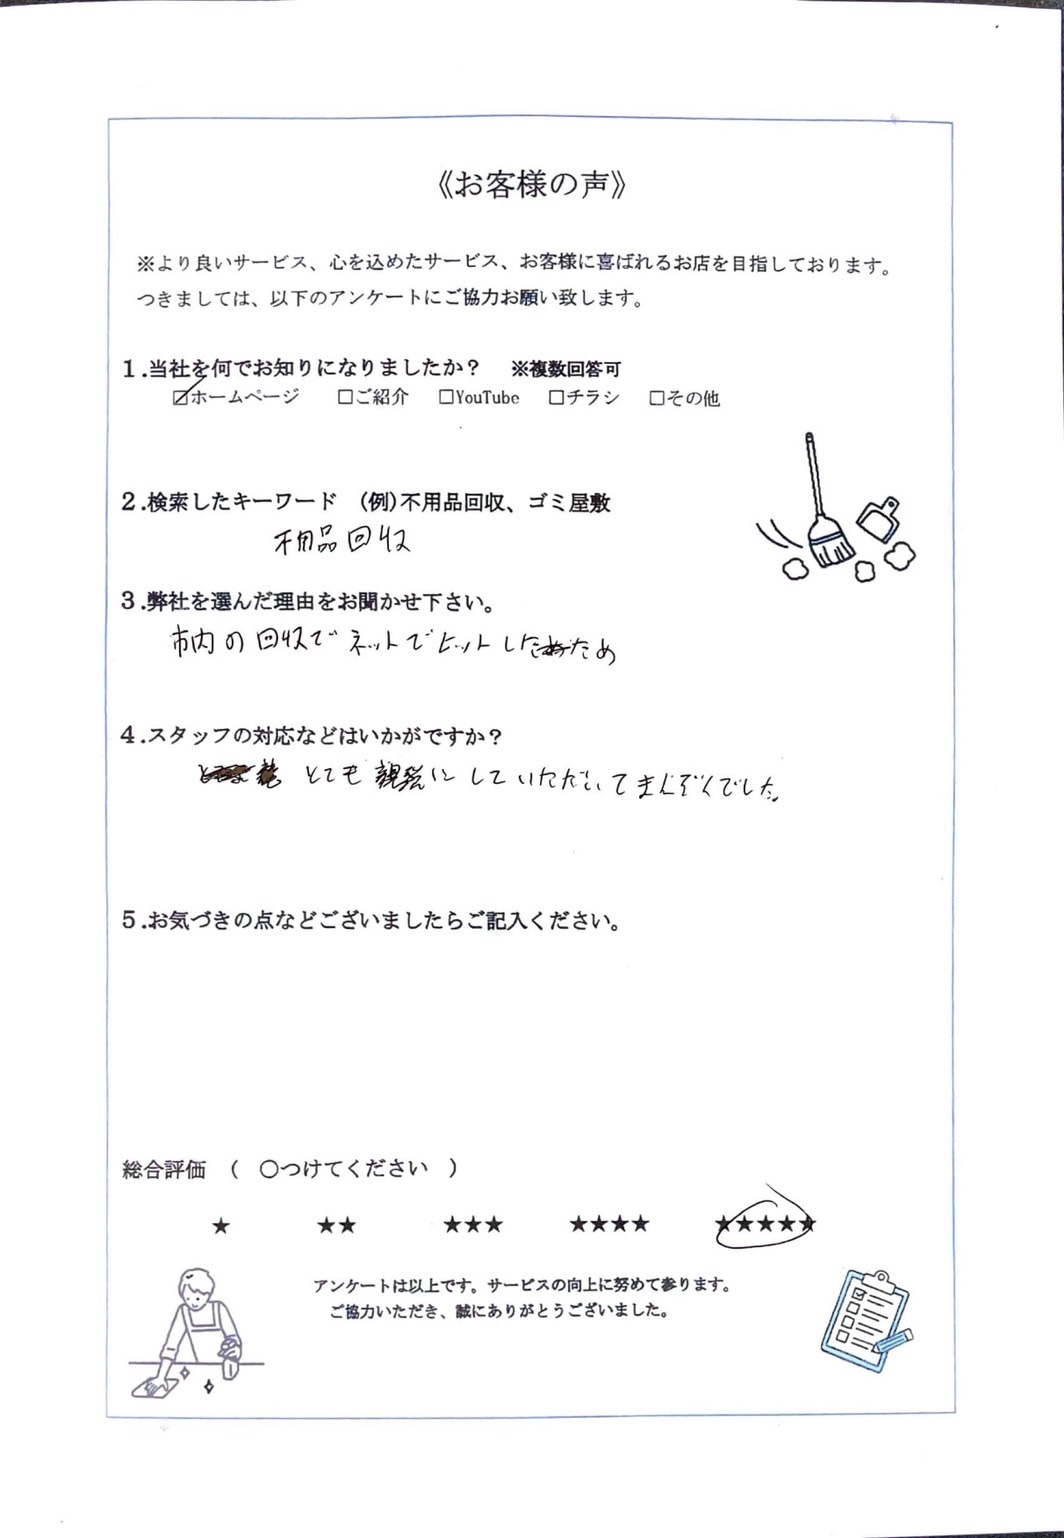 《お客様の声》
※より良いサービス、心を込めたサービス、お客様に喜ばれるお店を目指しております。
つきましては、以下のアンケートにご協力お願い致します。
1.当社を何でお知りになりましたか？　※複数回答可
☑ホームページ　□ご紹介　□YouTube　□チラシ　□その他
2.検索したキーワード　(例)不用品回収、ゴミ屋敷
不用品回収
3.弊社を選んだ理由をお聞かせ下さい。
市内の回収でネットでヒットしたため
4.スタッフの対応などはいかがですか？
とても親切にしていただいてまんぞくでした。
5.お気づきの点などございましたらご記入ください。
総合評価　(　○つけてください　)
★　★★　★★★　★★★★　★★★★★
アンケートは以上です。サービスの向上に努めて参ります。
ご協力いただき、誠にありがとうございました。